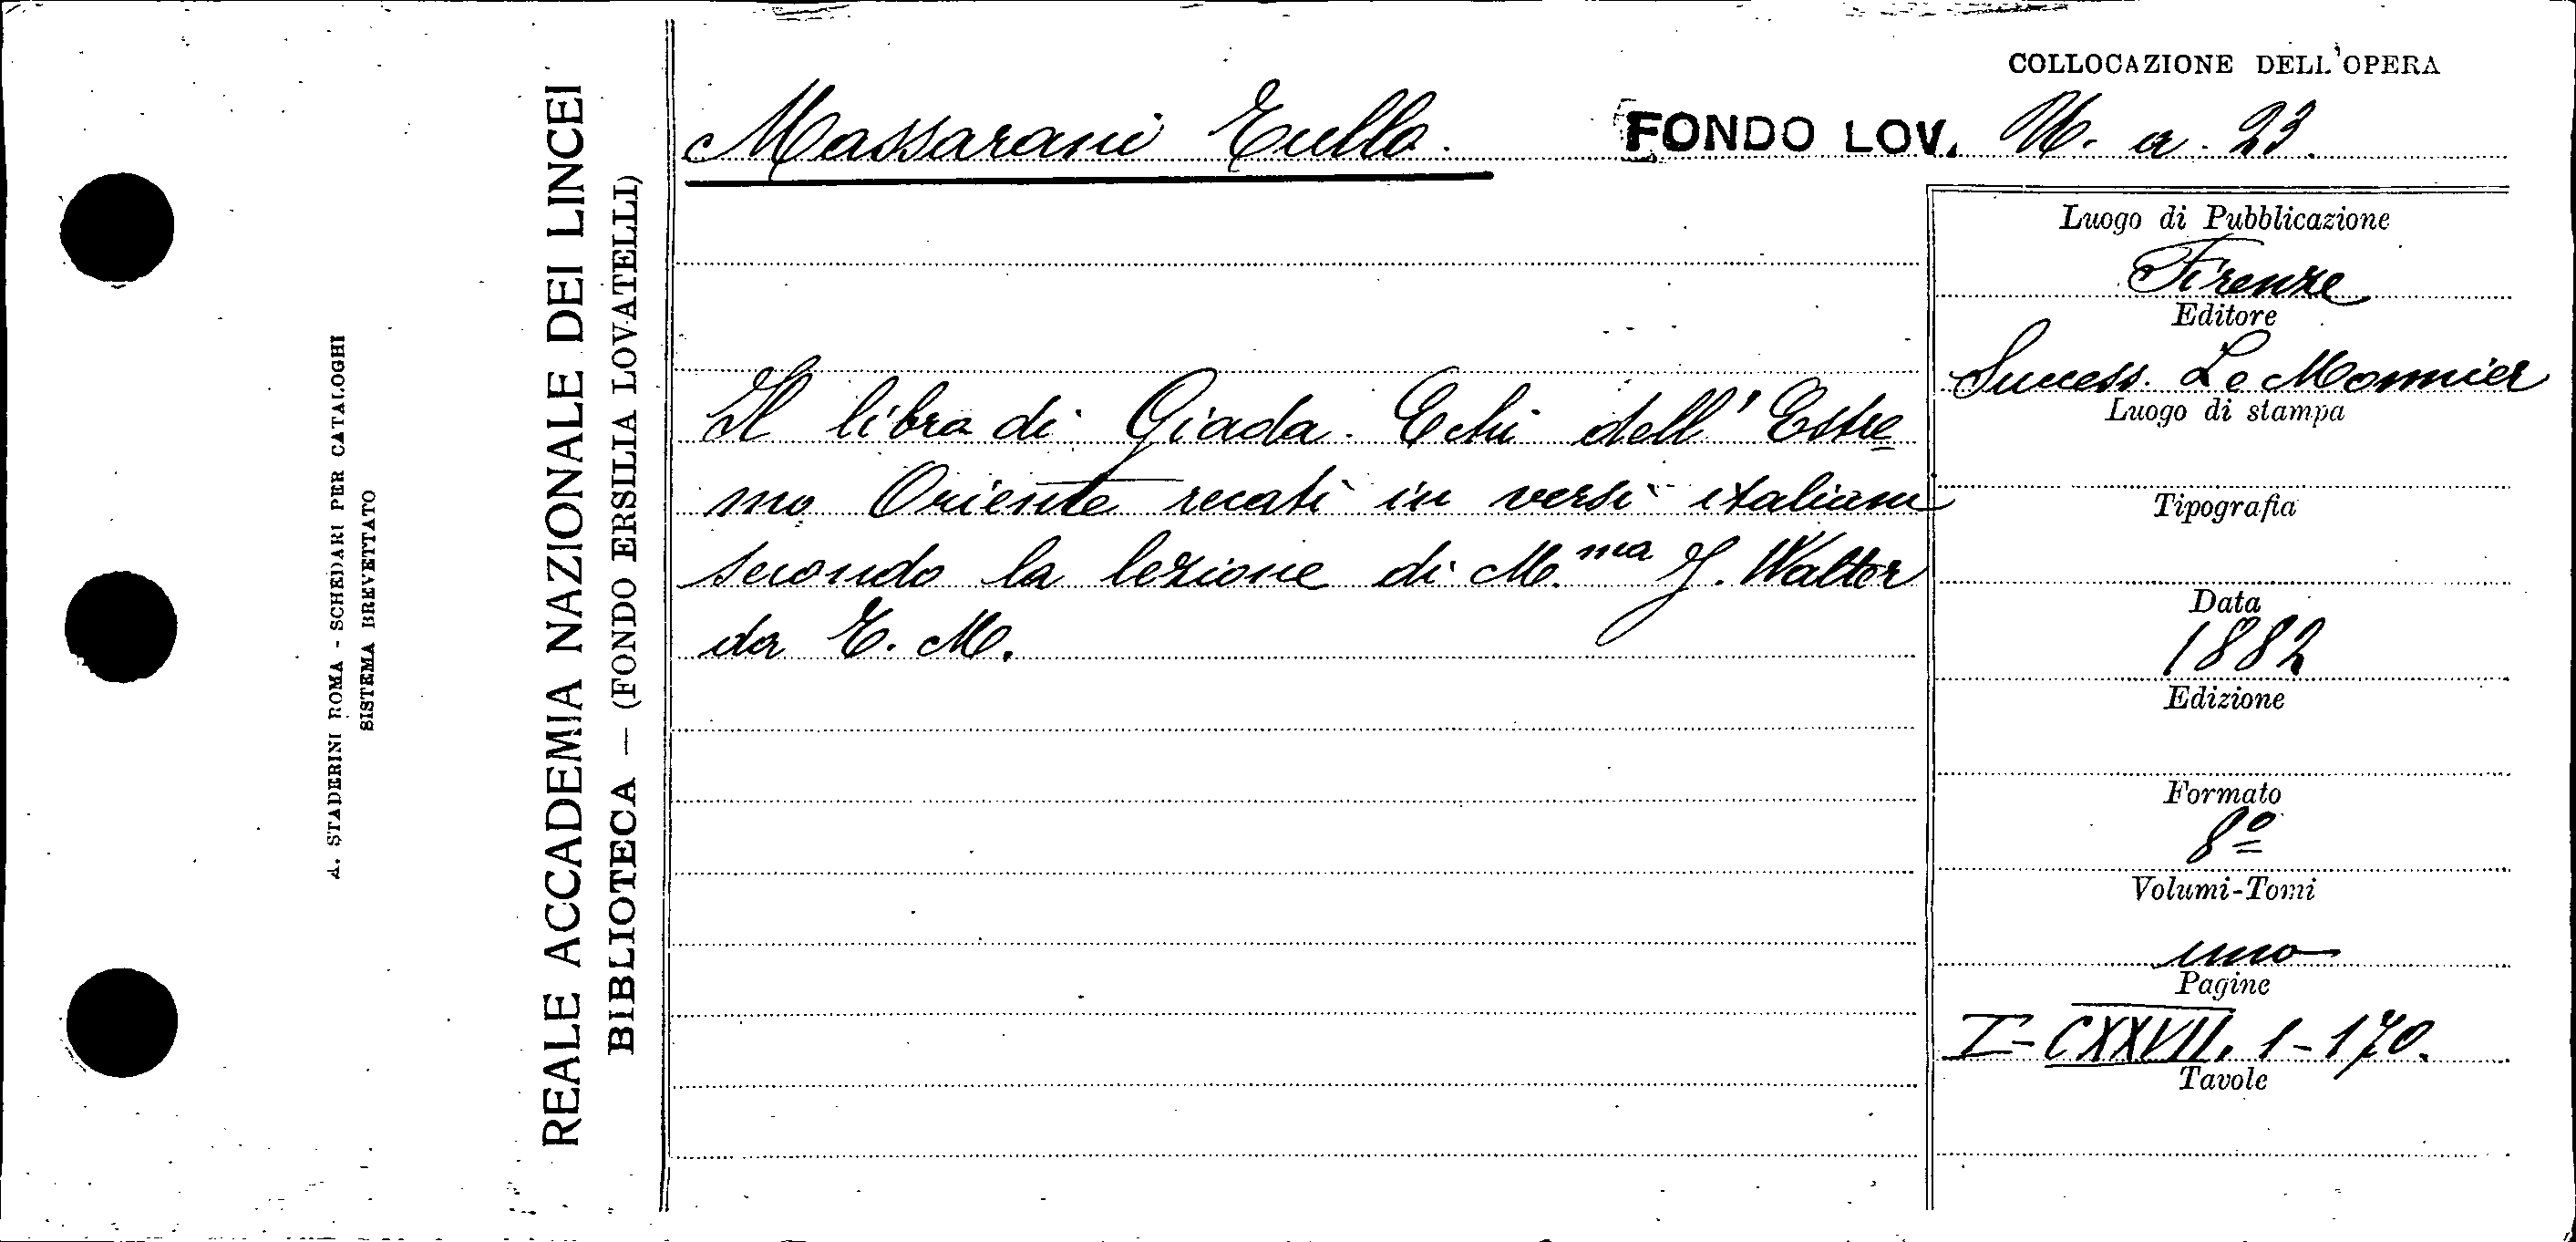 A. STADERINI ROMA - SCHEDARI PER CATALOGHI
SISTEMA BREVETTATO
REALE ACCADEMIA NAZIONALE DEI LINCEI
BIBLIOTECA — (FONDO ERSILIA LOVATELLI)
COLLOCAZIONE DELL'OPERA
Massarani Tullo. FONDO LOV. a. 23.
Il libro di Giada. Echi dell' Estre
mo Oriente recati in versi italiani
secondo la lezione di M.ma J. Walter
da T. M.
Luogo di Pubblicazione
Firenze
Editore
Success. Le Monnier
Luogo di stampa
Tipografia
Data
1882
Edizione
Formato
8º
Volumi-Tomi
uno
Pagine
I-CXXVII, 1-170.
Tavole